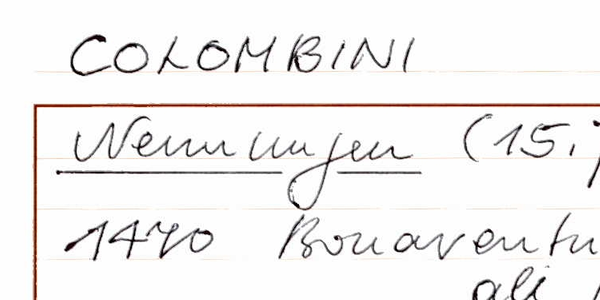 COLOMBINI
Nennungen (15.
1470 Bonaventu
ali